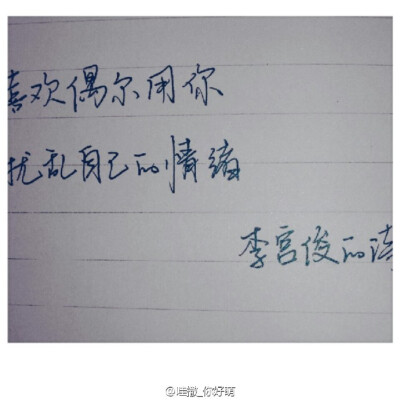 喜欢偶尔用你
扰乱自己的情绪
李宫俊的诗
@哇撒_你好萌